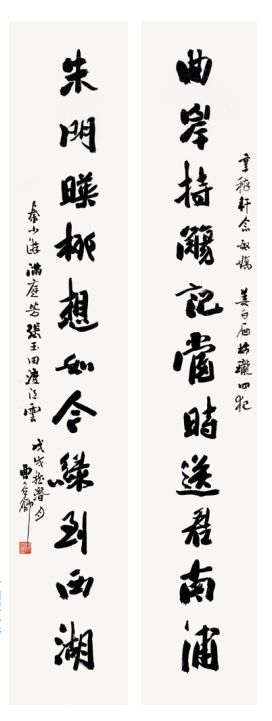 辛稼軒念奴嬌 姜白石玲瓏四犯
曲岸持觴記當時送君南浦
朱門暎柳想如今綠到西湖
秦少游滿庭芳 張玉田渡江雲
戊戌